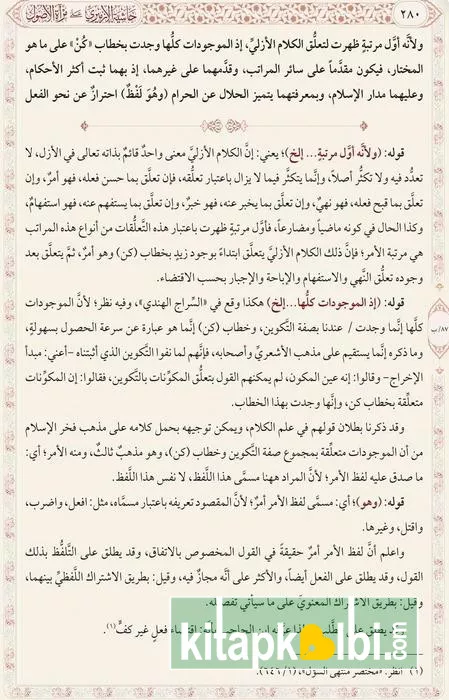 ٢٨٠
حاشية الإزميري على مرآة الأصول
ولأنَّه أوَّل مرتبةٍ ظهرت لتعلُّق الكلام الأزليِّ، إذ الموجودات كلُّها وجدت بخطاب «كُنْ» على ما هو
المختار، فيكون مقدَّماً على سائر المراتب، وقدَّمهما على غيرهما، إذ بهما ثبت أكثر الأحكام،
وعليهما مدار الإسلام، وبمعرفتهما يتميز الحلال عن الحرام (وهُوَ لَفْظٌ) احترازٌ عن نحو الفعل
قوله: (ولأنَّه أوَّل مرتبةٍ... إلخ)؛ يعني: إنَّ الكلام الأزليَّ معنى واحدٌ قائمٌ بذاته تعالى في الأزل، لا
تعدُّد فيه ولا تكثُّر أصلاً، وإنَّما يتكثَّر فيما لا يزال باعتبار تعلُّقه، فإن تعلَّق بما حسن فعله، فهو أمرٌ، وإن
تعلَّق بما قبح فعله، فهو نهيٌ، وإن تعلَّق بما يخبر عنه، فهو خبرٌ، وإن تعلَّق بما يستفهم عنه، فهو استفهامٌ،
وكذا الحال في كونه ماضياً ومضارعاً، فأوَّل مرتبةٍ ظهرت باعتبار هذه التَّعلُّقات من أنواع هذه المراتب
هي مرتبة الأمر؛ فإنَّ ذلك الكلام الأزليَّ يتعلَّق ابتداءً بوجود زيدٍ بخطاب (كن) وهو أمرٌ، ثمَّ يتعلَّق بعد
وجوده تعلُّق النَّهي والاستفهام والإباحة والإجبار بحسب الاقتضاء.
قوله: (إذ الموجودات كلُّها...إلخ) هكذا وقع في «السِّراج الهندي»، وفيه نظر؛ لأنَّ الموجودات
كلَّها إنَّما وجدت / عندنا بصفة التَّكوين، وخطاب (كن) إنَّما هو عبارة عن سرعة الحصول بسهولةٍ،
٨٧/ب
وما ذكره إنَّما يستقيم على مذهب الأشعريِّ وأصحابه، فإنَّهم لما نفوا التَّكوين الذي أثبتناه -أعني: مبدأ
الإخراج- وقالوا: إنه عين المكون، لم يمكنهم القول بتعلُّق المكوِّنات بالتَّكوين، فقالوا: إن المكوِّنات
متعلِّقة بخطاب كن، وإنَّها وجدت بهذا الخطاب.
وقد ذكرنا بطلان قولهم في علم الكلام، ويمكن توجيهه بحمل كلامه على مذهب فخر الإسلام
من أن الموجودات متعلِّقة بمجموع صفة التَّكوين وخطاب (كن)، وهو مذهبٌ ثالثٌ، ومنه الأمر؛ أي:
ما صدق عليه لفظ الأمر؛ لأنَّ المراد ههنا مسمَّى هذا اللَّفظ، لا نفس هذا اللَّفظ.
قوله: (وهو)؛ أي: مسمَّى لفظ الأمر أمرٌ؛ لأنَّ المقصود تعريفه باعتبار مسمَّاه، مثل: افعل، واضرب،
واقتل، وغيرها.
واعلم أنَّ لفظ الأمر أمرٌ حقيقةً في القول المخصوص بالاتفاق، وقد يطلق على التَّلفُّظ بذلك
القول، وقد يطلق على الفعل أيضاً، والأكثر على أنَّه مجازٌ فيه، وقيل: بطريق الاشتراك اللَّفظيِّ بينهما،
وقيل: بطريق الاشتراك المعنويِّ على ما سيأتي تفصيله.
وقد يطلق على الطَّلب ابن الحاجب بأنه: اقتضاء فعلٍ غير كفٍّ(١).
(١) انظر: «مختصر منتهى السؤل»، (١/ ٦٤٦).
kitapkolbi.com